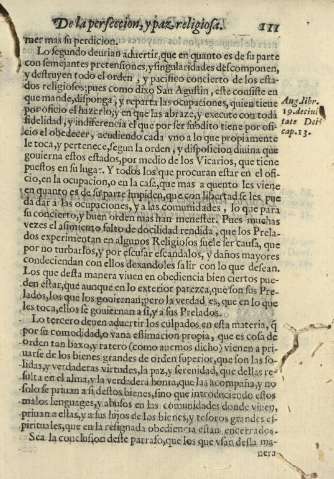 De la perfeccion, y paz religiosa. 111
mer mas su perdicion.
Lo segundo deurian aduertir, que en quanto es de su parte
con semejantes pretensiones, y singularidades descomponen,
y destruyen todo el orden, y pacifico concierto de los esta-
dos religiosos; pues como dixo San Agustin, este consiste en
que mande, disponga, y reparta las ocupaciones, quien tiene
por oficio el hazerlo, y en que las abraze, y execute con toda
fidelidad, y indiferencia el que por ser subdito tiene por ofi-
cio el obedecer, acudiendo cada vno a lo que propiamente
le toca, y pertenece, segun la orden, y disposicion diuina que
gouierna estos estados, por medio de los Vicarios, que tiene
puestos en su lugar. Y todos los que procuran estar en el ofi-
cio, en la ocupacion, o en la casa, que mas a quento les viene
en quanto es de su parte impiden, que con libertad se les pue
da dar a las ocupaciones, y a las comunidades, lo que para
su concierto, y buen orden mas han menester. Pues muchas
vezes el asimiento falto de docilidad rendida, que los Prela-
dos experimentan en algunos Religiosos suele ser causa, que
por no turbarlos, y por escusar escandalos, y daños mayores
condeciendan con ellos dexandoles salir con lo que desean.
Los que desta manera viuen en obediencia bien ciertos pue-
den estar, que aunque en lo exterior parezca, que son sus Pre-
lados, los que los gouiernan; pero la verdad es, que en lo que
les toca, ellos se gouiernan a si, y a sus Prelados.
Lo tercero deuen aduertir los culpados en esta materia, q̃
por su comodidad, o vana estimacion propia, que es cosa de
orden tan baxo, y ratero (como auemos dicho) vienen a pri-
uarse de los bienes grandes de orden superior, que son las so-
lidas, y verdaderas virtudes, la paz, y serenidad, que dellas re-
sulta en el alma, y la verdadera honra, que las acompaña, y no
solo se priuan a si destos bienes, sino que introduciendo estos
malos lenguages, y abusos en las comunidades donde viuen,
priuan a ellas, y a sus hijos de los bienes, y tesoros grandes es-
pirituales, que en la resignada obediencia estan encerrados.
Sea la conclusion deste parrafo, que los que vsan desta ma-
nera
Aug. libr.
19. de ciui
tate Dei
cap. 13.